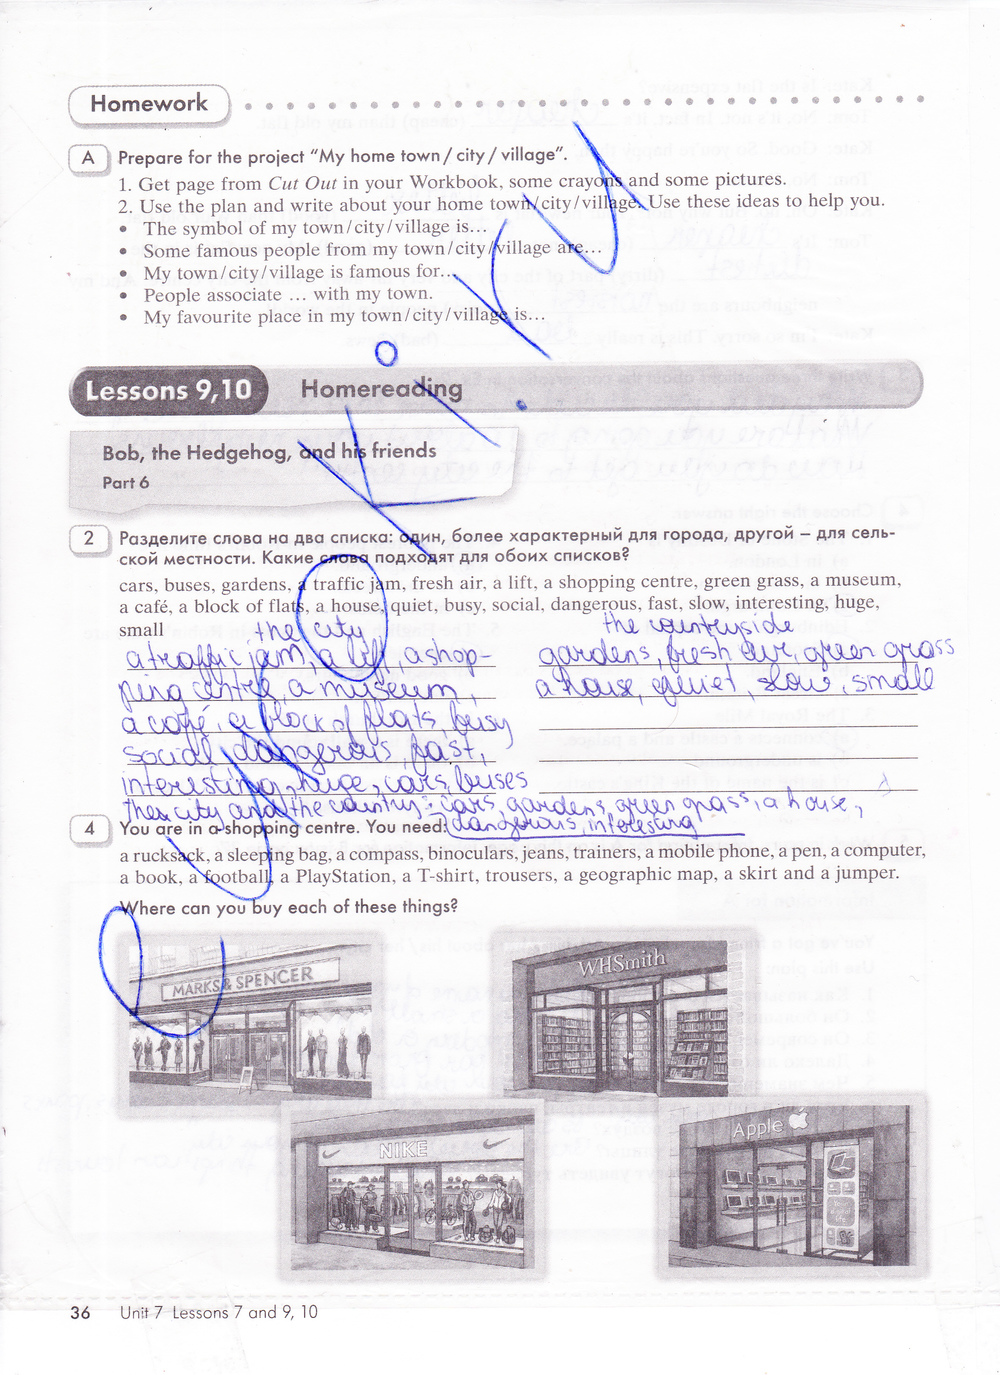 Homework
A Prepare for the project “My home town / city / village”.
1. Get page from Cut Out in your Workbook, some crayons and some pictures.
2. Use the plan and write about your home town/city/village. Use these ideas to help you.
• The symbol of my town/city/village is...
• Some famous people from my town/city/village are...
• My town/city/village is famous for...
• People associate ... with my town.
• My favourite place in my town/city/village is...
Lessons 9,10 Homereading
Bob, the Hedgehog, and his friends
Part 6
2 Разделите слова на два списка: один, более характерный для города, другой – для сель-
ской местности. Какие слова подходят для обоих списков?
cars, buses, gardens, a traffic jam, fresh air, a lift, a shopping centre, green grass, a museum,
a café, a block of flats, a house, quiet, busy, social, dangerous, fast, slow, interesting, huge,
small
the city
a traffic jam, a lift, a shop-
ping centre, a museum,
a café, a block of flats, busy
social, dangerous, fast,
interesting, huge, cars, buses
the countryside
gardens, fresh air, green grass
a house, quiet, slow, small
The city and the country: cars, gardens, green grass, a house,
dangerous, interesting
4 You are in a shopping centre. You need:
a rucksack, a sleeping bag, a compass, binoculars, jeans, trainers, a mobile phone, a pen, a computer,
a book, a football, a PlayStation, a T-shirt, trousers, a geographic map, a skirt and a jumper.
Where can you buy each of these things?
MARKS & SPENCER
WHSmith
NIKE
Apple
36 Unit 7 Lessons 7 and 9, 10